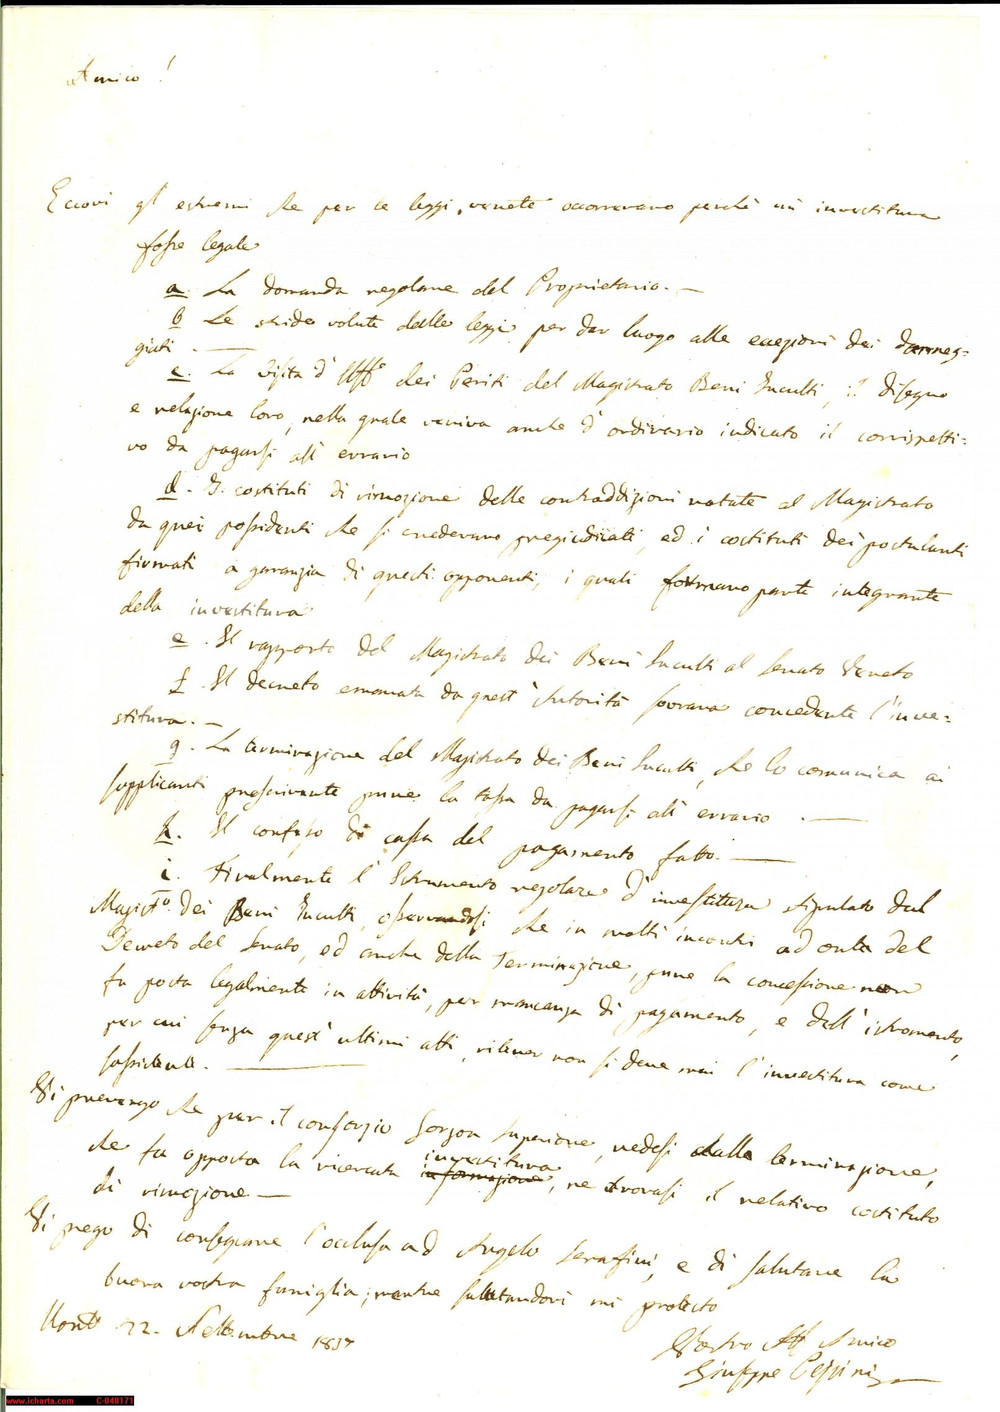 Amico!
Eccovi gl' estremi che per le leggi venete occorrevano perchè un' investitura
fosse legale
a. La domanda regolare del Proprietario. —
b Le stride volute dalle leggi per dar luogo alle eccezioni dei danneg=
giati. —
c. La visita d' Uff.o dei Periti del Magistrato Beni Inculti, il disegno
e relazione loro, nella quale veniva anche d' ordinario indicato il corrispetti=
vo da pagarsi all' errario
d. I costituti di rimozione delle contraddizioni notate al Magistrato
da quei possidenti che si credevano pregiudicati, ed i costituti dei postulanti
firmati a garanzia di questi opponenti, i quali formavano parte integrante
della investitura
e. Il rapporto del Magistrato dei Beni Inculti al Senato Veneto
f. Il decreto emanato da quest' Autorità sovrana concedente l' inve=
stitura. —
g. La terminazione del Magistrato dei Beni Inculti, che lo comunica ai
supplicanti prescrivente pure la tassa da pagarsi all' errario. —
h. Il confesso di cassa del pagamento fatto. —
i. Finalmente l' Istrumento regolare d' investitura stipulato dal
Magist.to dei Beni Inculti, osservandosi che in molti incontri ad onta del
Decreto del Senato, ed anche della Terminazione, pure la concessione non
fu posta legalmente in attività, per mancanza di pagamento, e dell' istromento,
per cui senza quest' ultimi atti, ritener non si deve mai l' investitura come
sussistente. —
Vi prevengo che per il consorzio Gorzon superiore, vedesi dalla terminazione,
che fu apposta la ricercata investitura, ne trovasi il relativo costituto
di rimozione —
Vi prego di consegnare l' occlusa ad Angelo Serafini, e di salutare la
buona vostra famiglia; mentre salutandovi mi protesto
22. Settembre 1837
Vostro Aff Amico
Giuseppe
www.icharta.com C-048171